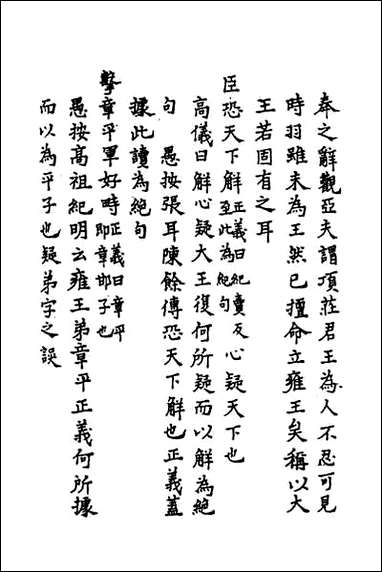 奉之辭觀亞夫謂項莊君王為人不忍可見
時羽雖未為王然已擅命立雍王矣稱以大
王若固有之耳
臣恐天下解正義曰紀賣反至此為絕句心疑天下也
高儀曰解心疑大王復何所疑而以解為絕
句　愚按張耳陳餘傳恐天下解也正義蓋
據此讀為絕句
擊章平軍好畤正義曰章平即章邯子也
愚按高祖紀明云雍王弟章平正義何所據
而以為平子也疑弟字之誤